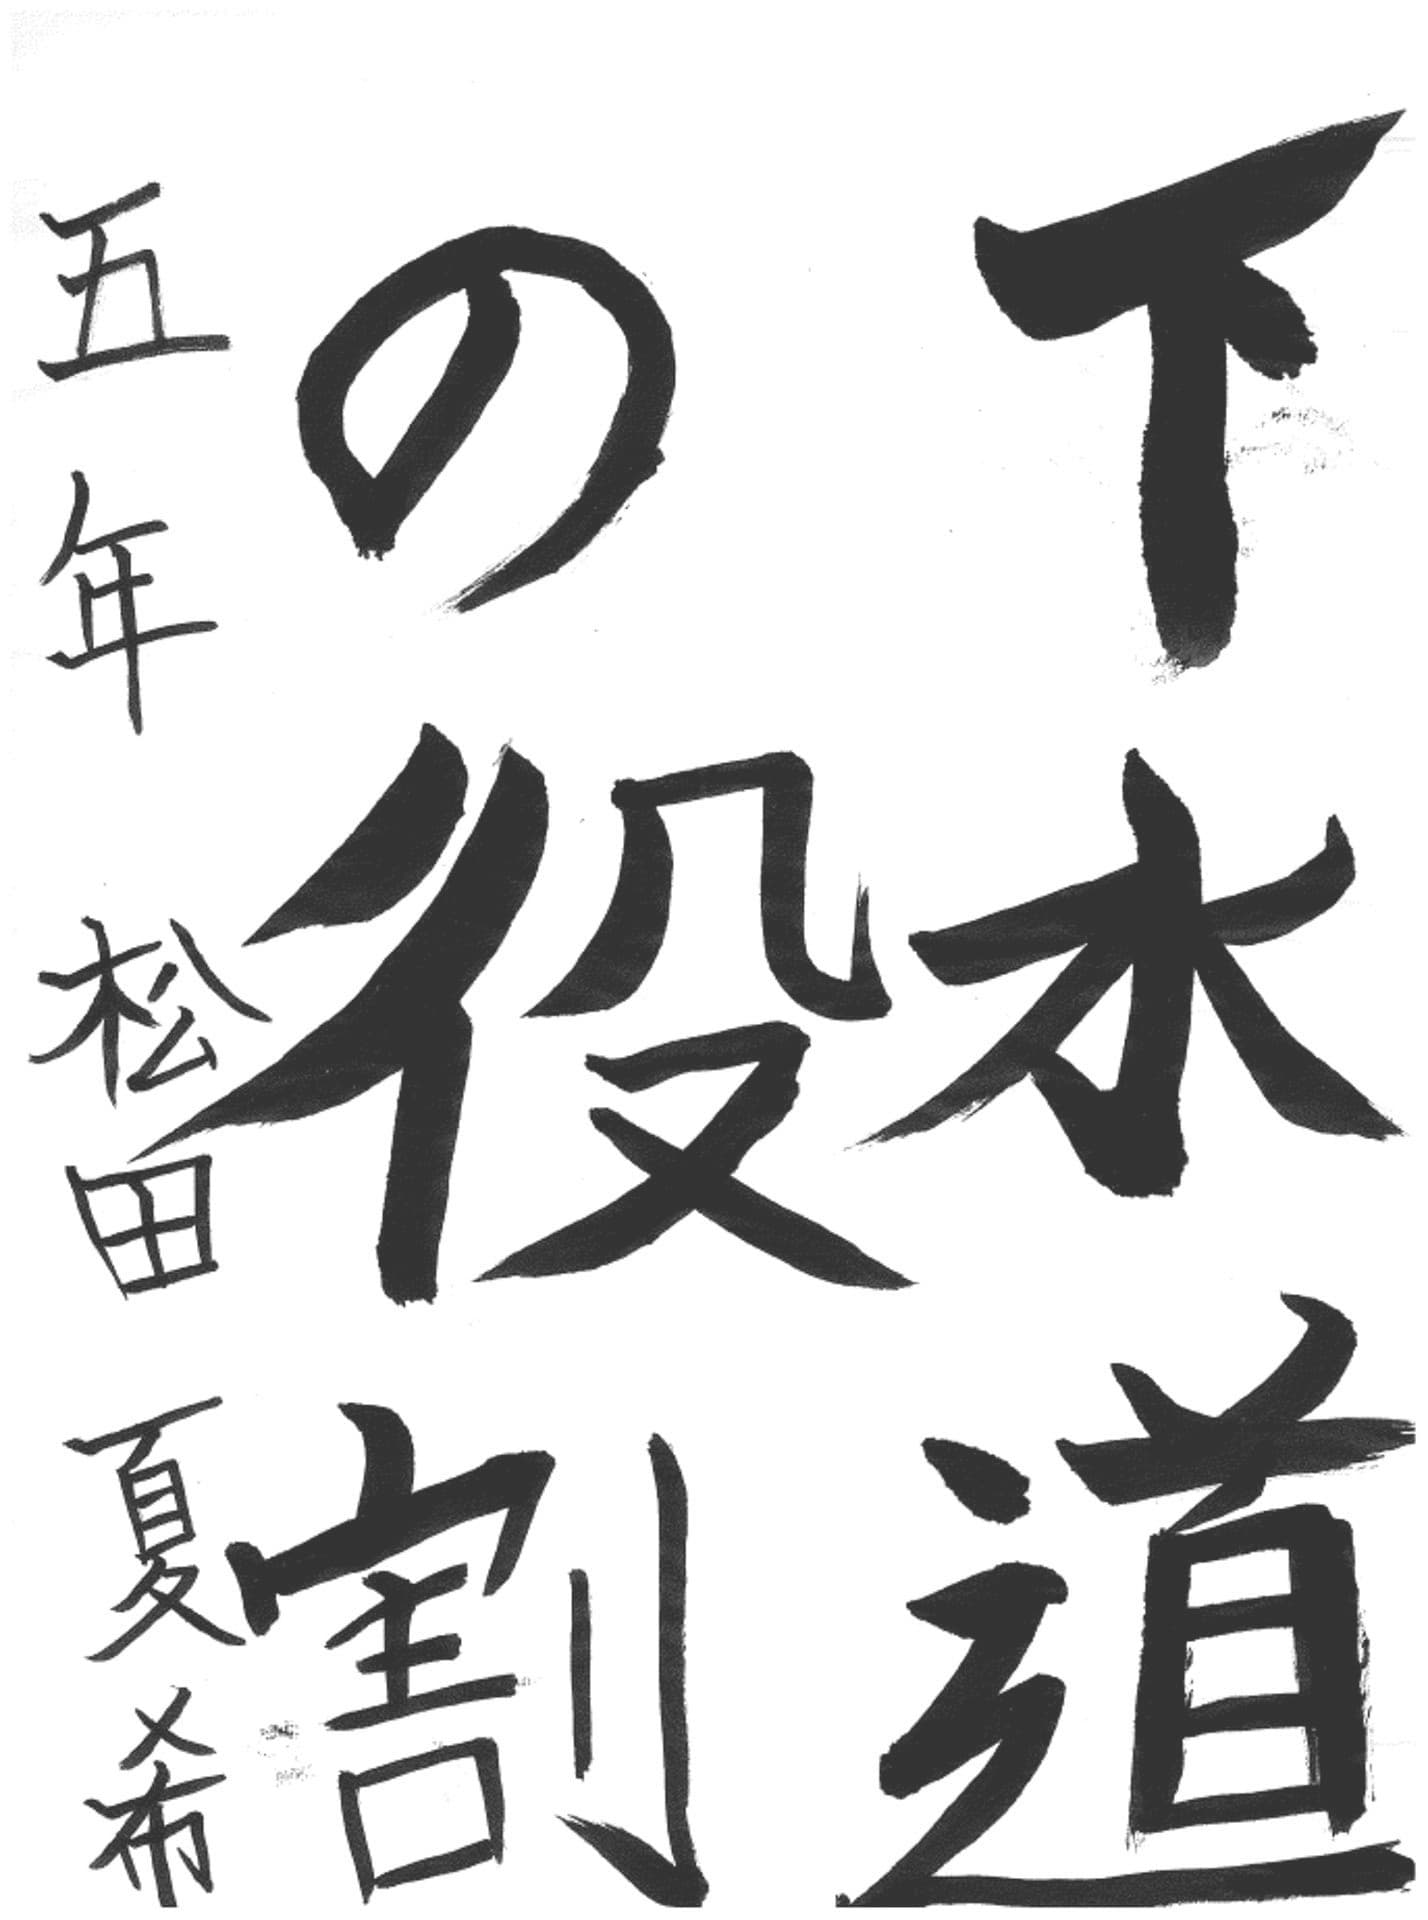 下水道
の役割
五年 松田夏希